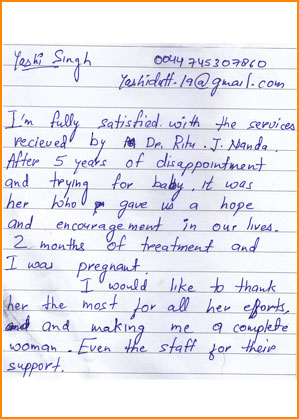 Yashi Singh 0044 745307860
Yashidutt.19@gmail.com
I'm fully satisfied with the services
recieved by Dr. Ritu. J. Nanda.
After 5 years of disappointment
and trying for baby, it was
her who gave us a hope
and encouragement in our lives.
2 months of treatment and
I was pregnant.
I would like to thank
her the most for all her efforts,
and making me a complete
woman. Even the staff for their
support.